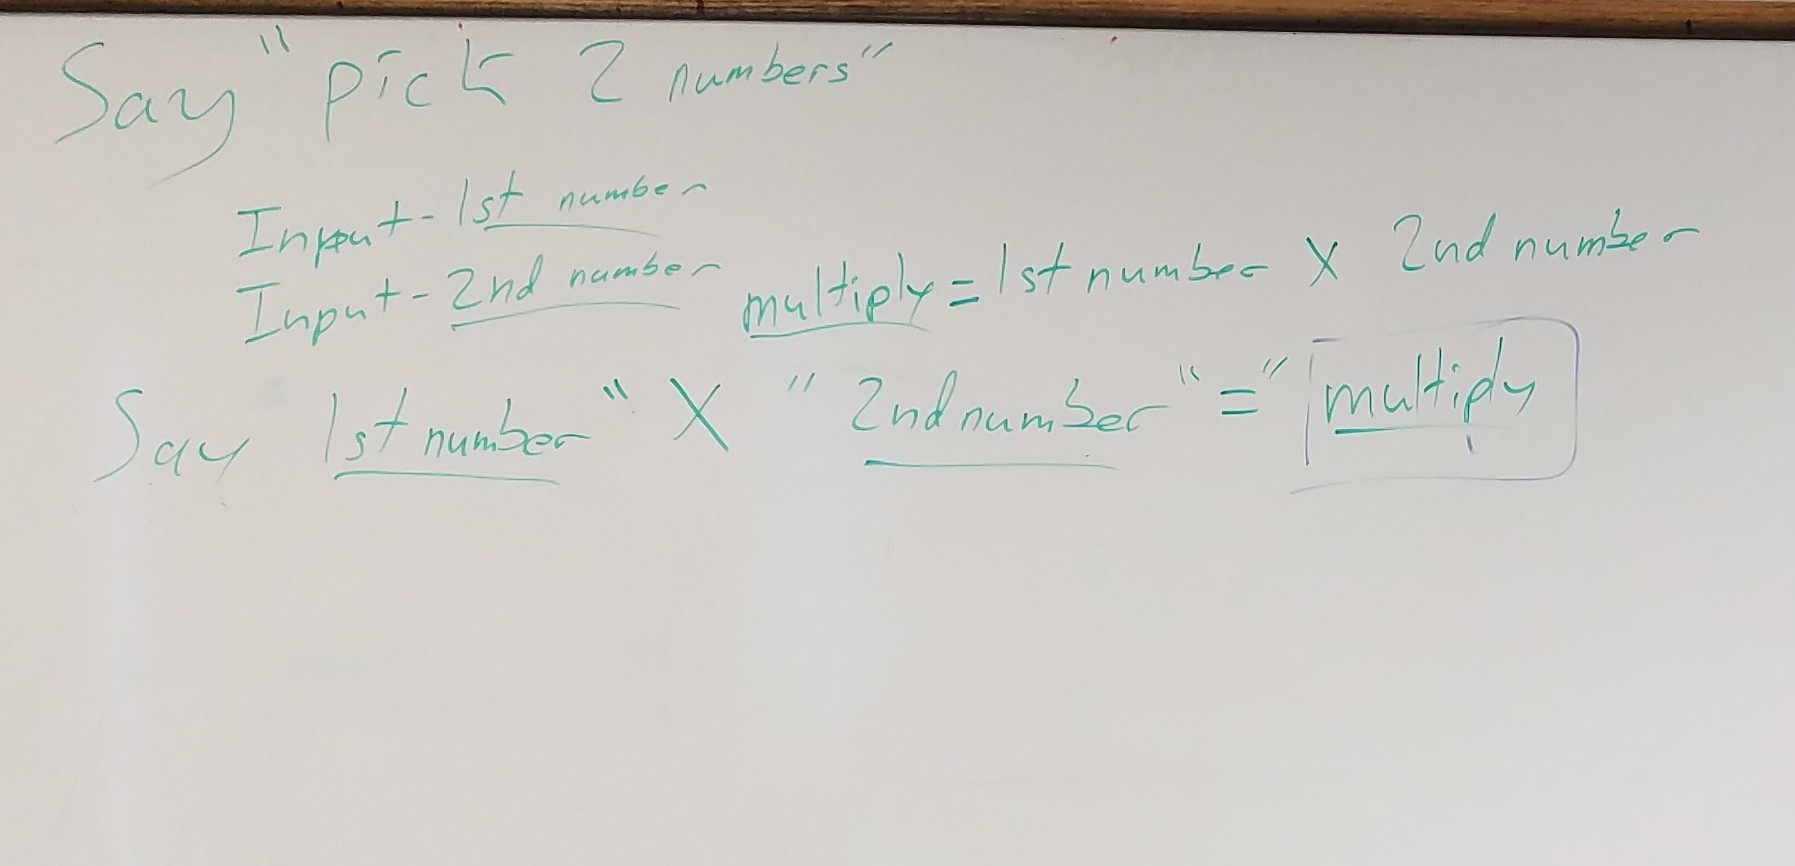 Say "pick 2 numbers"
Input - 1st number
Input - 2nd number
multiply = 1st number X 2nd number
Say 1st number " X " 2nd number " = " multiply